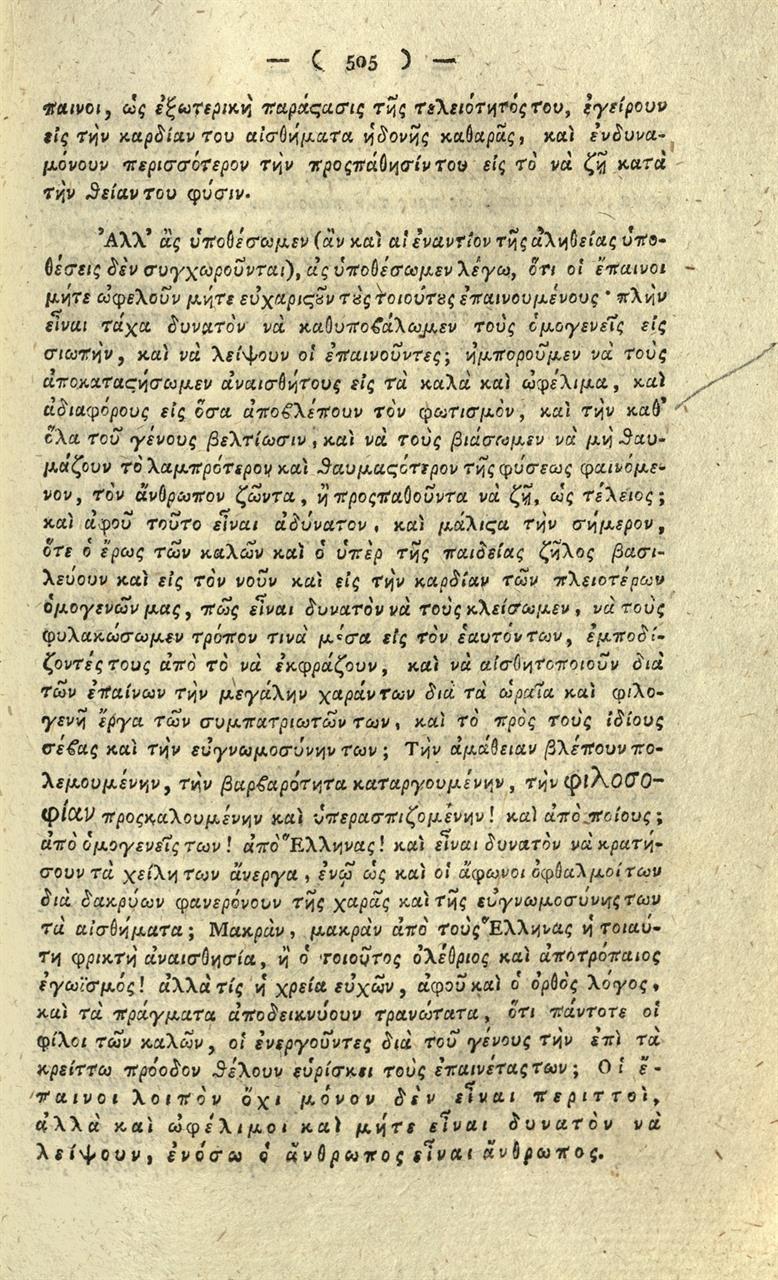 — ( 505 ) —
παινοι, ὡς ἐξωτερικὴ παράϛασις τῆς τελειότητός του, ἐγείρουν
εἰς τὴν καρδίαν του αἰσθήματα ἡδονῆς καθαρᾶς, καὶ ἐνδυνα-
μόνουν περισσότερον τὴν προςπάθησίν του εἰς τὸ νὰ ζῇ κατὰ
τὴν θείαν του φύσιν.
Ἀλλ' ἂς ὑποθέσωμεν (ἂν καὶ αἱ ἐναντίον τῆς ἀληθείας ὑπο-
θέσεις δὲν συγχωροῦνται), ἂς ὑποθέσωμεν λέγω, ὅτι οἱ ἔπαινοι
μήτε ὠφελοῦν μήτε εὐχαριϛȣ͂ν τȣ̀ς τοιούτȣς ἐπαινουμένους · πλὴν
εἶναι τάχα δυνατὸν νὰ καθυποβάλωμεν τοὺς ὁμογενεῖς εἰς
σιωπὴν, καὶ νὰ λείψουν οἱ ἐπαινοῦντες; ἠμποροῦμεν νὰ τοὺς
ἀποκαταϛήσωμεν ἀναισθήτους εἰς τὰ καλὰ καὶ ὠφέλιμα, καὶ
ἀδιαφόρους εἰς ὅσα ἀποβλέπουν τὸν φωτισμὸν, καὶ τὴν καθ'
ὅλα τοῦ γένους βελτίωσιν, καὶ νὰ τοὺς βιάσωμεν νὰ μὴ θαυ-
μάζουν τὸ λαμπρότερον καὶ θαυμαϛότερον τῆς φύσεως φαινόμε-
νον, τὸν ἄνθρωπον ζῶντα, ἢ προςπαθοῦντα νὰ ζῇ, ὡς τέλειος;
καὶ ἀφοῦ τοῦτο εἶναι ἀδύνατον, καὶ μάλιϛα τὴν σήμερον,
ὅτε ὁ ἔρως τῶν καλῶν καὶ ὁ ὑπὲρ τῆς παιδείας ζῆλος βασι-
λεύουν καὶ εἰς τὸν νοῦν καὶ εἰς τὴν καρδίαν τῶν πλειοτέρων
ὁμογενῶν μας, πῶς εἶναι δυνατὸν νὰ τοὺς κλείσωμεν, νὰ τοὺς
φυλακώσωμεν τρόπον τινὰ μέσα εἰς τὸν ἑαυτόν των, ἐμποδί-
ζοντές τους ἀπὸ τὸ νὰ ἐκφράζουν, καὶ νὰ αἰσθητοποιοῦν διὰ
τῶν ἐπαίνων τὴν μεγάλην χαράν των διὰ τὰ ὡραῖα καὶ φιλο-
γενῆ ἔργα τῶν συμπατριωτῶν των, καὶ τὸ πρὸς τοὺς ἰδίους
σέβας καὶ τὴν εὐγνωμοσύνην των; Τὴν ἀμάθειαν βλέπουν πο-
λεμουμένην, τὴν βαρβαρότητα καταργουμένην, τὴν φιλοσο-
φίαν προςκαλουμένην καὶ ὑπερασπιζομένην! καὶ ἀπὸ ποίους;
ἀπὸ ὁμογενεῖς των! ἀπὸ Ἕλληνας! καὶ εἶναι δυνατὸν νὰ κρατή-
σουν τὰ χείλη των ἄνεργα, ἐνῷ ὡς καὶ οἱ ἄφωνοι ὀφθαλμοί των
διὰ δακρύων φανερόνουν τῆς χαρᾶς καὶ τῆς εὐγνωμοσύνης των
τὰ αἰσθήματα; Μακρὰν, μακρὰν ἀπὸ τοὺς Ἕλληνας ἡ τοιαύ-
τη φρικτὴ ἀναισθησία, ἢ ὁ τοιοῦτος ὀλέθριος καὶ ἀποτρόπαιος
ἐγωϊσμός! ἀλλὰ τίς ἡ χρεία εὐχῶν, ἀφοῦ καὶ ὁ ὀρθὸς λόγος,
καὶ τὰ πράγματα ἀποδεικνύουν τρανώτατα, ὅτι πάντοτε οἱ
φίλοι τῶν καλῶν, οἱ ἐνεργοῦντες διὰ τοῦ γένους τὴν ἐπὶ τὰ
κρείττω πρόοδον θέλουν εὑρίσκει τοὺς ἐπαινέτας των; Οἱ ἔ-
παινοι λοιπὸν ὄχι μόνον δὲν εἶναι περιττοὶ,
ἀλλὰ καὶ ὠφέλιμοι καὶ μήτε εἶναι δυνατὸν νὰ
λείψουν, ἐνόσω ὁ ἄνθρωπος εἶναι ἄνθρωπος.